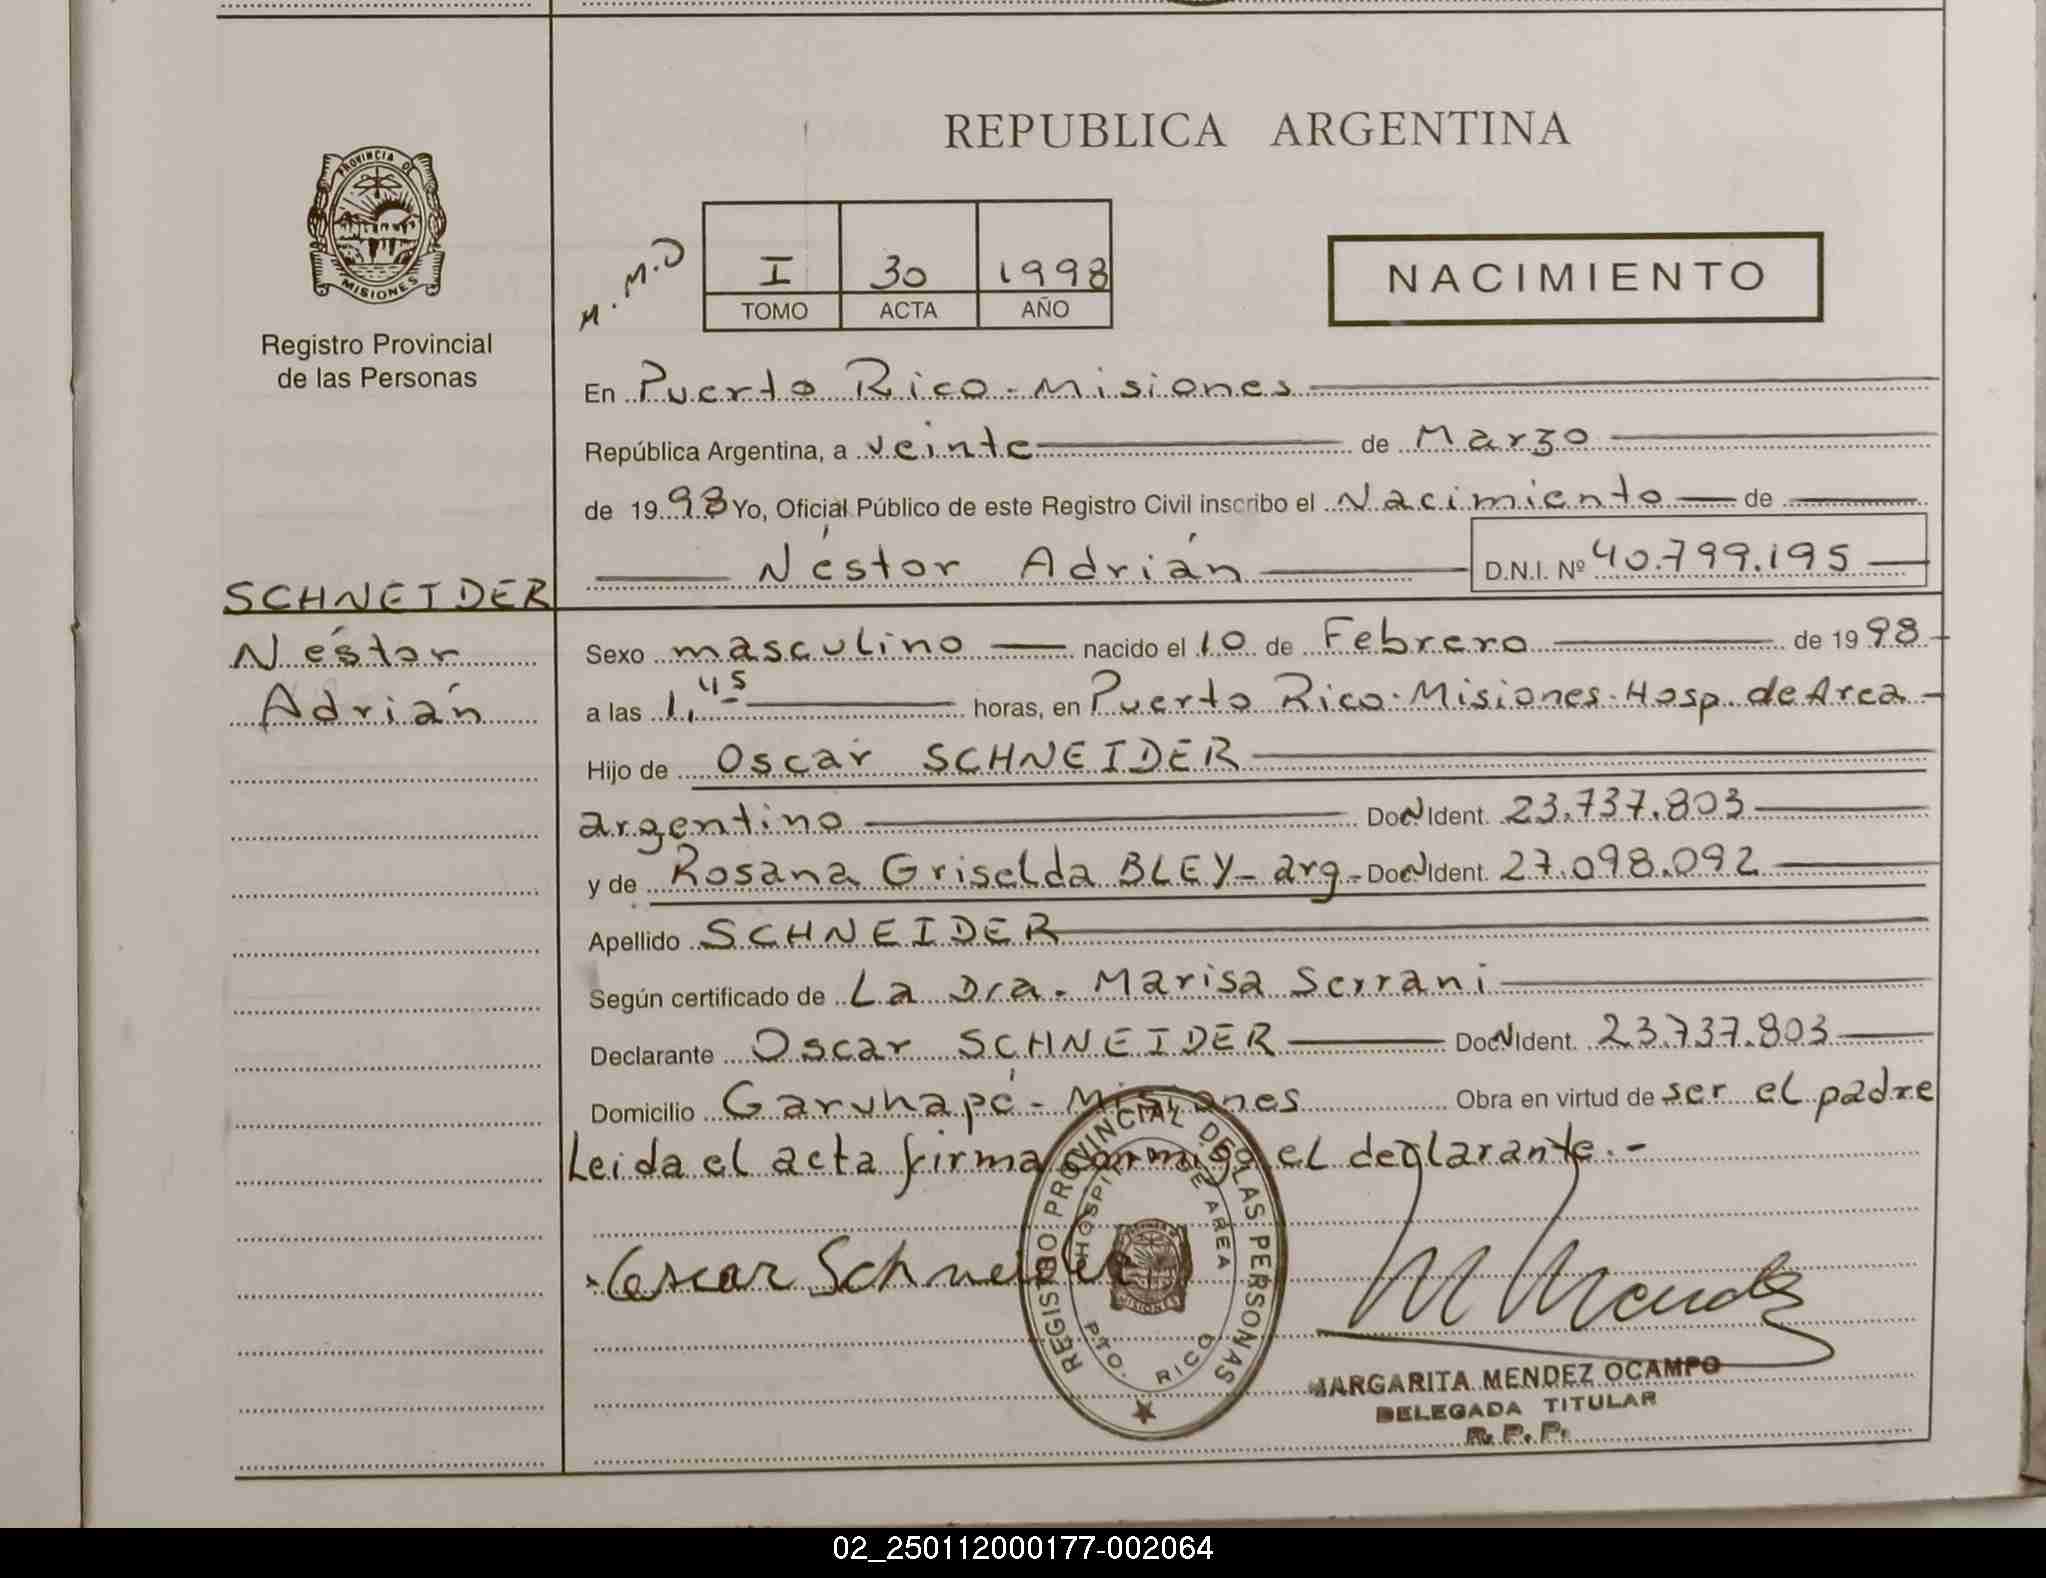 REPUBLICA ARGENTINA
PROVINCIA DE
MISIONES
Registro Provincial
de las Personas
M.M.O
I 30 1998
TOMO ACTA AÑO
NACIMIENTO
En Puerto Rico - Misiones
República Argentina, a veinte de Marzo
de 1998 Yo, Oficial Público de este Registro Civil inscribo el Nacimiento de
Néstor Adrián D.N.I. Nº 40.799.195
SCHNEIDER
Néstor
Adrián
Sexo masculino nacido el 10 de Febrero de 1998
a las 1,45 horas, en Puerto Rico - Misiones - Hosp. de Area -
Hijo de Oscar SCHNEIDER
argentino Doc N Ident. 23.737.803
y de Rosana Griselda BLEY - arg - Doc N Ident. 27.098.092
Apellido SCHNEIDER
Según certificado de La Dra. Marisa Serrani
Declarante Oscar SCHNEIDER Doc N Ident. 23.737.803
Domicilio Garuhapé - Misiones Obra en virtud de ser el padre
Leida el acta firma conmigo el declarante. -
Oscar Schneider
REGISTRO PROVINCIAL DE LAS PERSONAS
HOSPITAL DE AREA
MISIONES
PTO. RICO
M Mendez
MARGARITA MENDEZ OCAMPO
DELEGADA TITULAR
R. P. P.
02_250112000177-002064